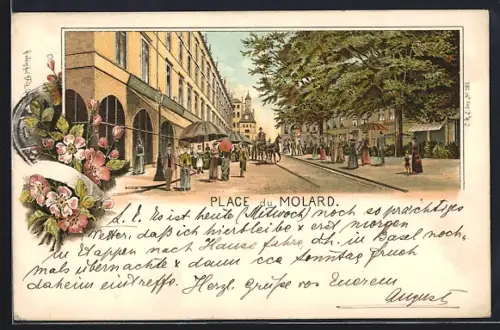 PLACE du MOLARD.
L. E. Es ist heute (Mittwoch) noch so prächtiges
Wetter, daß ich hierbleibe & erst morgen
in Etappen nach Hause fahre, d.h. in Basel noch-
mals übernachte & dann cca Sonntag frueh
daheim eintreffe. Herzl. Grüße von Euerem
August